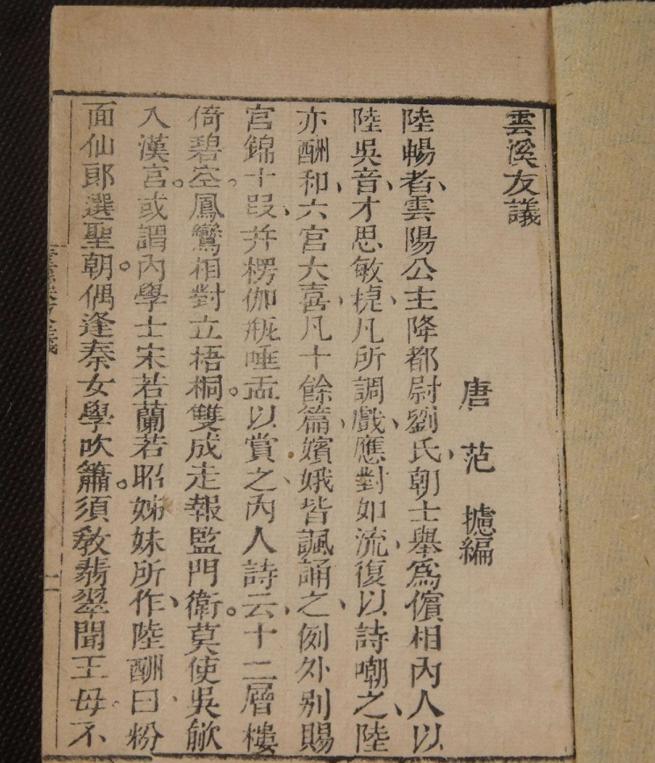 雲溪友議
唐 范 攄編
陸暢者雲陽公主降都尉劉氏朝士舉為儐相內人以
陸吳音才思敏捷凡所調戲應對如流復以詩嘲之陸
亦酬和六宮大喜凡十餘篇嬪娥皆諷誦之例外別賜
宮錦十段并楞伽瓶唾盂以賞之內人詩云十二層樓
倚碧空。鳳鸞相對立梧桐。雙成走報監門衛。莫使吳歈
入漢宮。或謂內學士宋若蘭若昭姊妹所作陸酬曰粉
面仙郎選聖朝。偶逢秦女學吹簫。須教翡翠聞王母。不